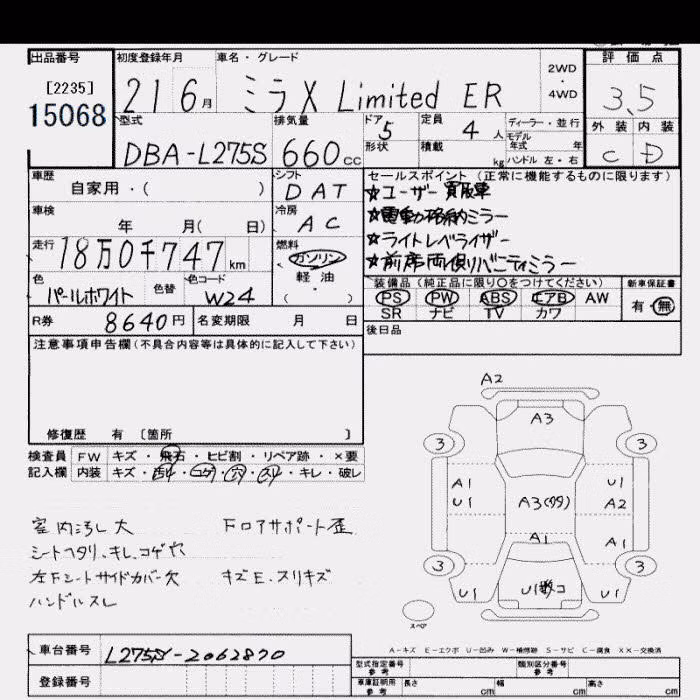 出品番号 初度登録年月 車名・グレード 評価点
[2235] 2WD
15068 21 6月 ミラX Limited ER ・4WD 3.5
型式 排気量 ドア 5 定員 4人 ディーラー・並行 外装 内装
DBA-L275S 660cc 形状 積載 kg モデル年式 年 ハンドル 左・右 C D
車歴 自家用・( ) シフト DAT セールスポイント (正常に機能するものに限ります)
☆ユーザー買取車
車検 年 月( 日) 冷房 AC ☆電動格納ミラー
☆ライトレベライザー
走行 18万0千747km 燃料 ガソリン 軽油・( ) ☆前席両側バニティミラー
色 パールホワイト 色替 色コード W24 装備品 (純正品に限り○をつけてください) 新車保証書
PS PW ABS エアB AW 有・無
SR ナビ TV カワ
R券 8640円 名変期限 月 日 後日品
注意事項申告欄(不具合内容等は具体的に記入して下さい)
修復歴 有 〔箇所 〕
検査員 FW キズ・飛石・ヒビ割・リペア跡・×要
記入欄 内装 キズ・汚れ・コゲ・穴・スレ・キレ・破レ
室内汚し大 Fロアサポート歪
シートヘタリ、キレ、コゲ穴
左Fシートサイドカバー欠 キズE、スリキズ
ハンドルスレ
A2
A3
3 3
A1 U1
U1 A3(多) A2
A1 A1
3 3
U1 U1数コ U1
スペア
A-キズ E-エクボ U-凹み W-補修跡 S-サビ C-腐食 XX-交換済
車台番号 L275S-2062870 型式指定番号 参考 類別区分番号 参考
登録番号 車庫証明用 参考 長さ cm 幅 cm 高さ cm